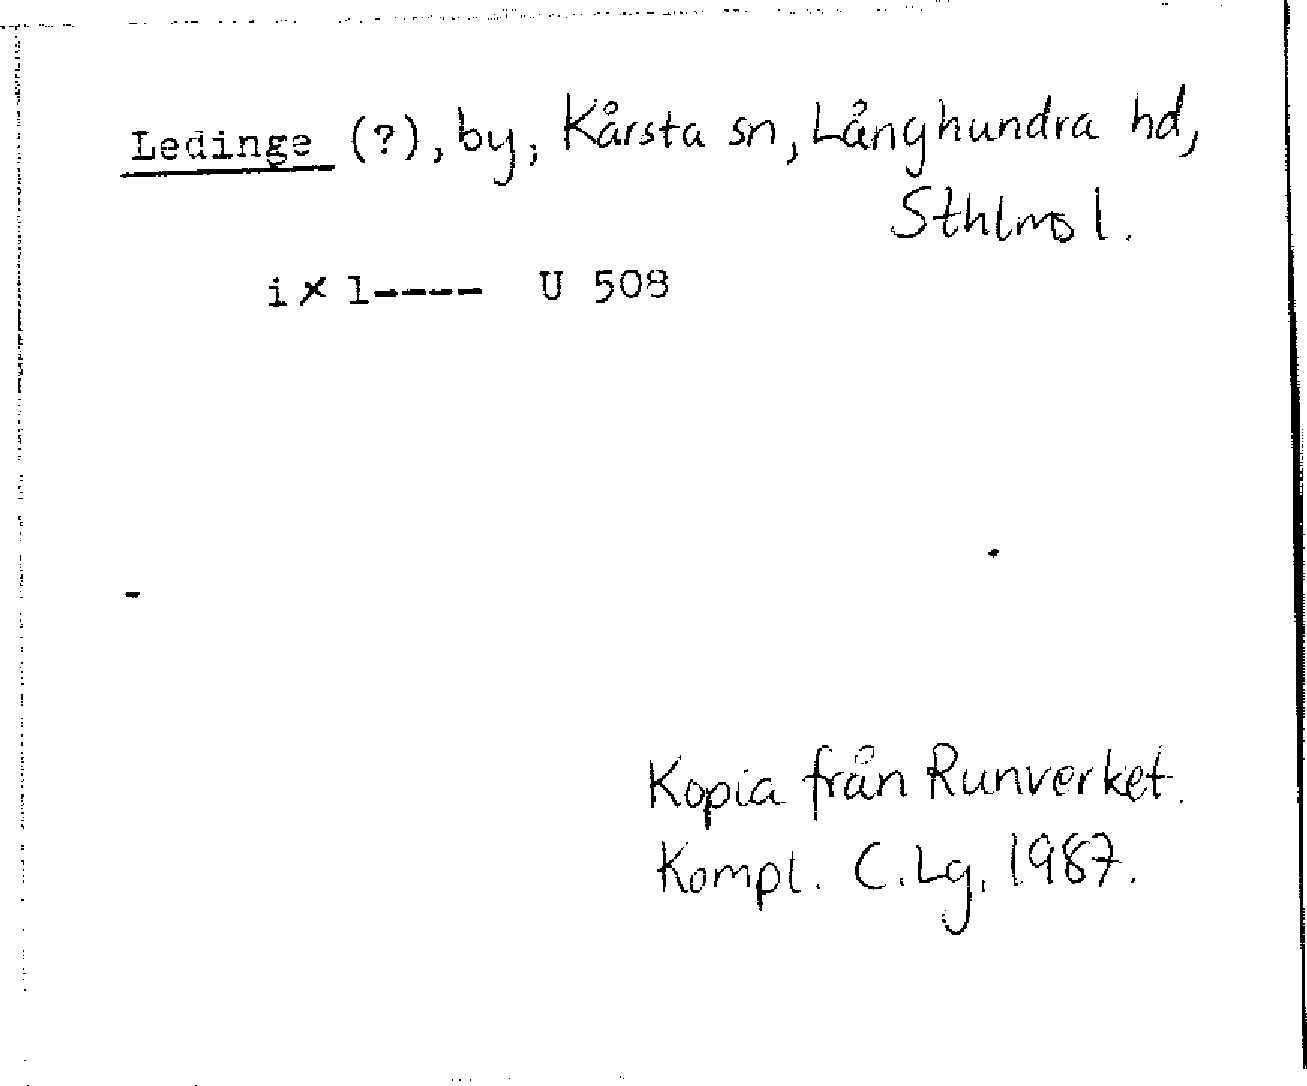 Ledinge (?), by, Kårsta sn, Långhundra hd,
Sthlms l.
i × l---- U 508
Kopia från Runverket.
Kompl. C.Lg. 1987.